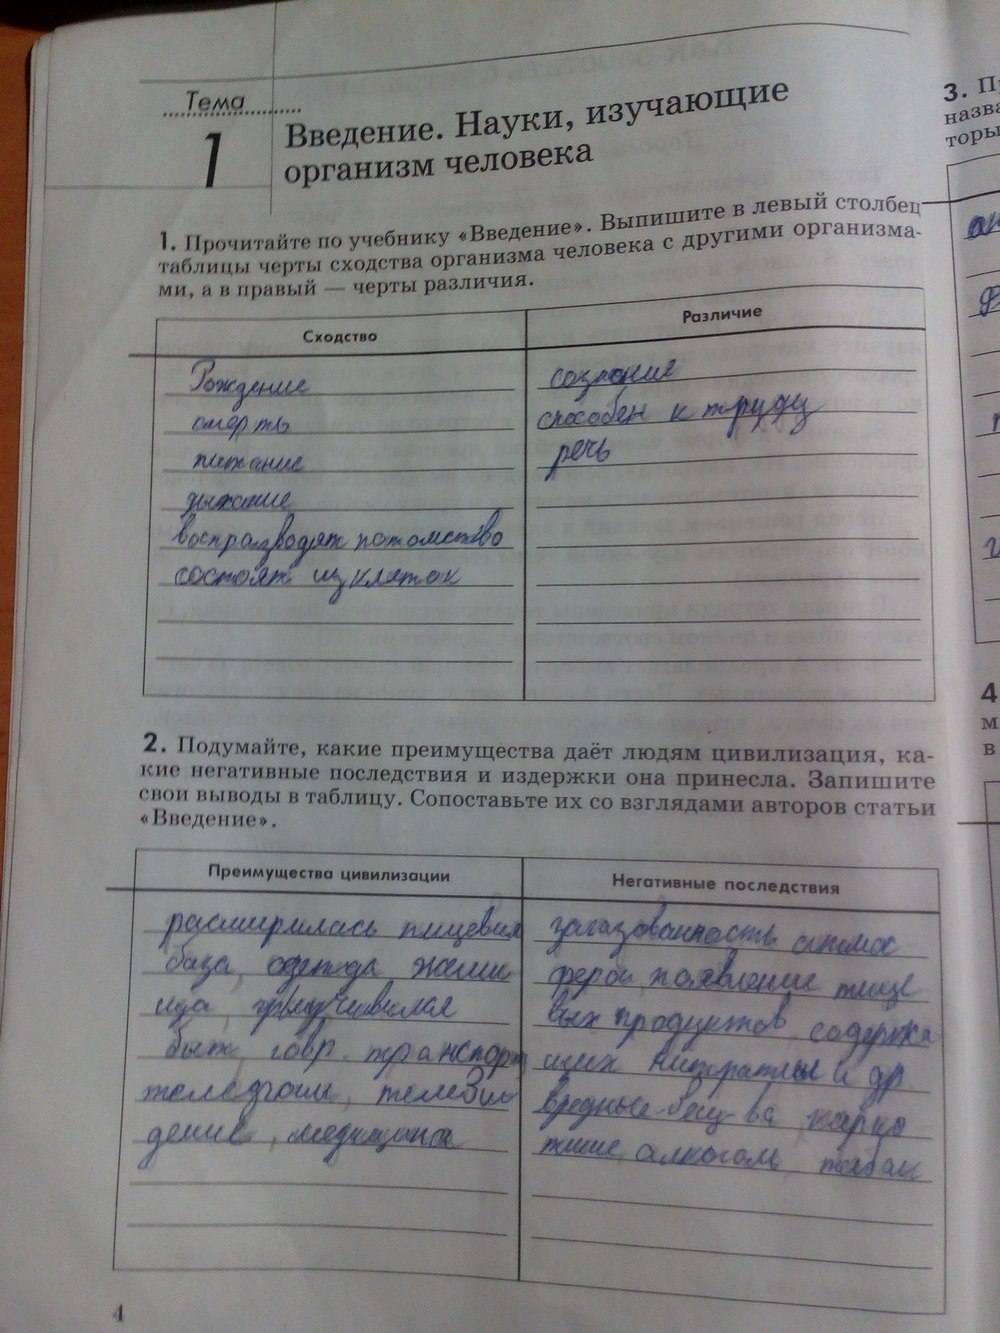 Тема
1
Введение. Науки, изучающие
организм человека
1. Прочитайте по учебнику «Введение». Выпишите в левый столбец
таблицы черты сходства организма человека с другими организма-
ми, а в правый — черты различия.
Сходство
Различие
Рождение
сознание
смерть
способен к труду
питание
речь
дыхание
воспразводят потомство
состоят из клеток
2. Подумайте, какие преимущества даёт людям цивилизация, ка-
кие негативные последствия и издержки она принесла. Запишите
свои выводы в таблицу. Сопоставьте их со взглядами авторов статьи
«Введение».
Преимущества цивилизации
Негативные последствия
расширилась пищевая
база, одежда жили
ща,
быт, совр. транспорт
телефоны, телеви
дение, медицина
загазованность атмос
феры, появление пище
вых продуктов, содержа
щих нитраты и др
вредные вещ-ва, нарко
тики, алкоголь, табак
4
3. П
назва
торы
4
м
в